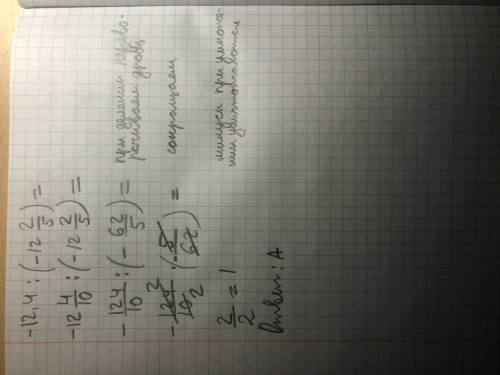 -12,4 : (-12 2/5) =
-12 4/10 : (-12 2/5) =
- 124/10 : (- 62/5) = при делении перево-
рачиваем дробь
- 124/10 2 2 · (- 5/62) = сокращаем
2/2 = 1 минусы при умноже-
нии уничтожаются
Ответ: A